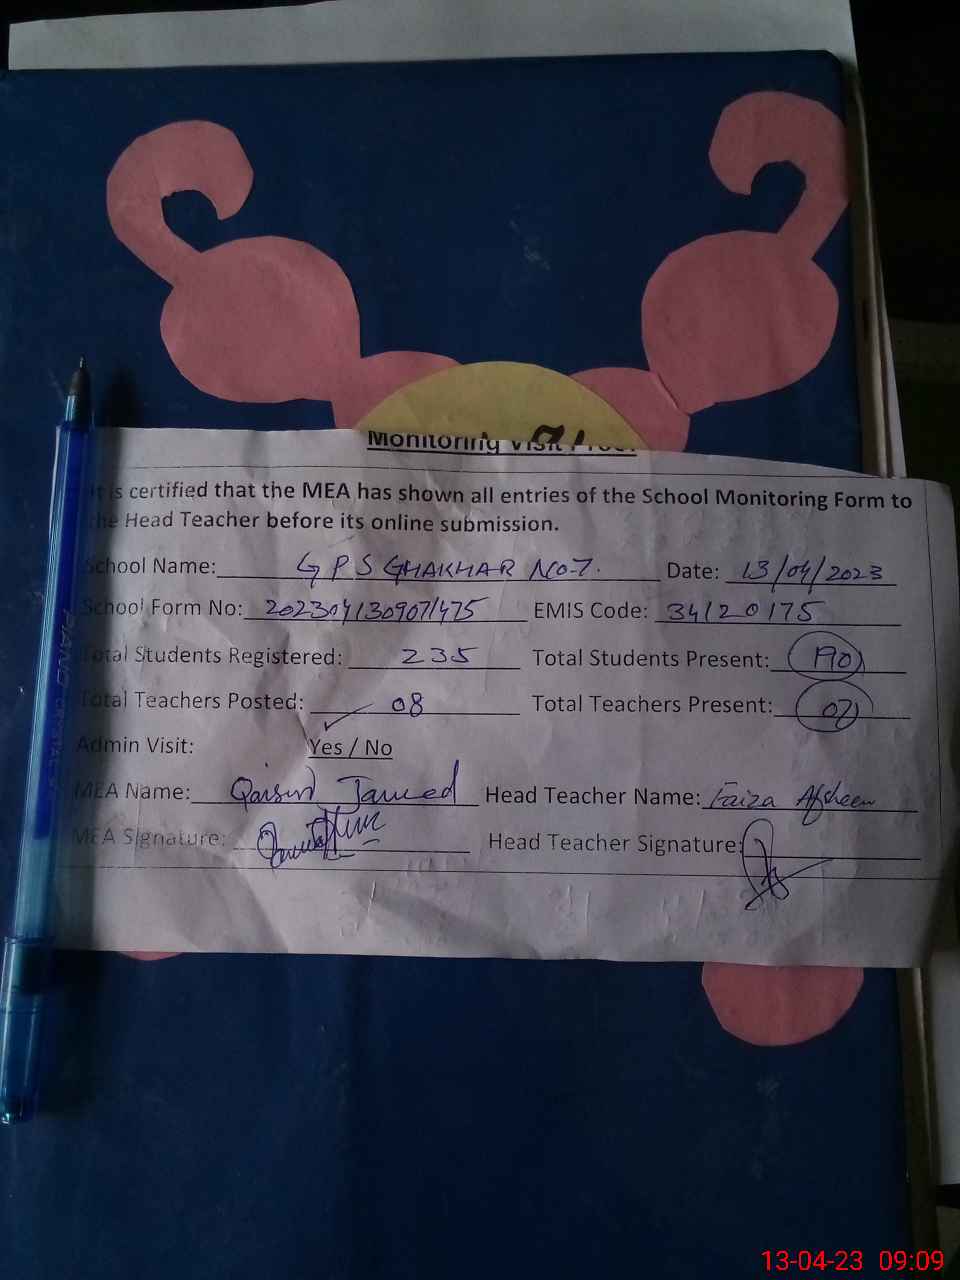 Monitoring Visit Proof
It is certified that the MEA has shown all entries of the School Monitoring Form to
the Head Teacher before its online submission.
School Name: GPS GHAKHAR NO-7. Date: 13/04/2023
School Form No: 2023041309071475 EMIS Code: 34120175
Total Students Registered: 235 Total Students Present: 190
Total Teachers Posted: 08 Total Teachers Present: 07
Admin Visit: Yes / No
MEA Name: Jaweed Head Teacher Name: Faiza Afsheen
MEA Signature: Head Teacher Signature:
13-04-23 09:09